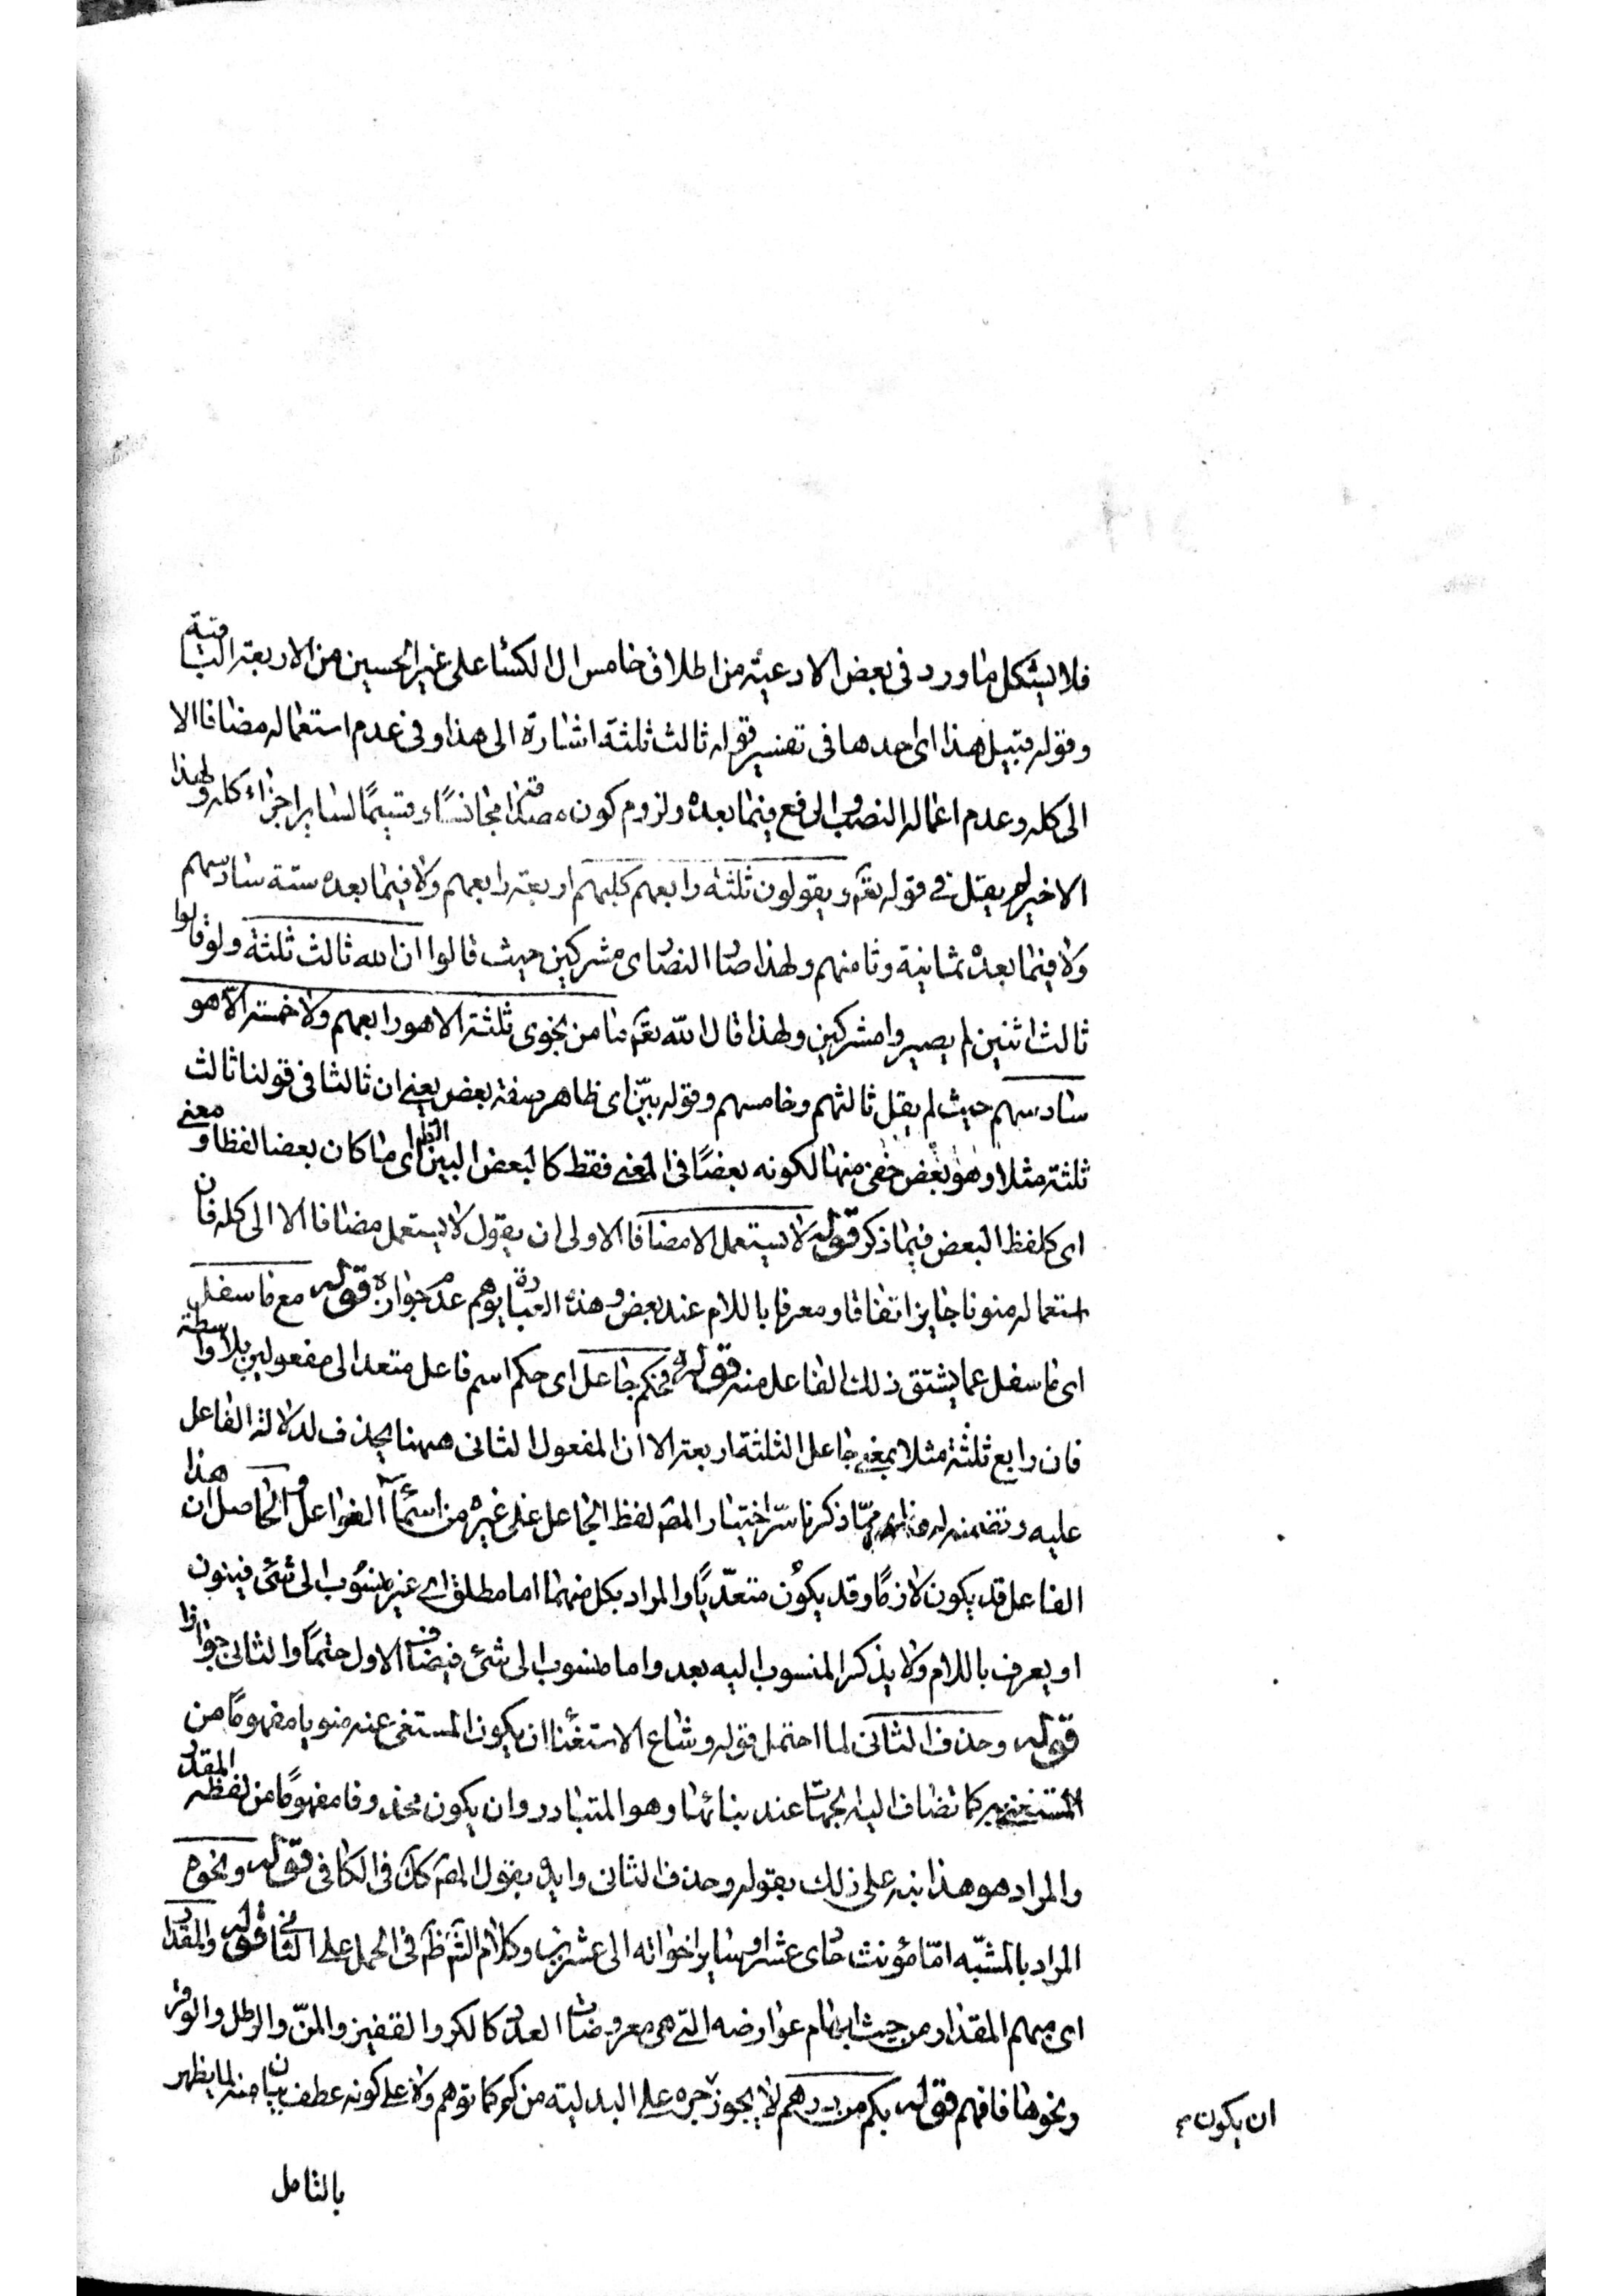 فلا يشكل ما ورد فى بعض الادعية من اطلاق خامس ال الكسا على غير الحسين من الاربعة الباقية
وقوله قبيل هذا اى احدها فى تفسير قوله ثالث ثلثة اشارة الى هذا وفى عدم استعماله مضافا الا
الى كله وعدم اعماله النصب والرفع فيما بعده ولزوم كونه مجانسًا وقسيمًا لساير اجزاء كله ولهذا
الاخير لم يقل فى قوله تعم ويقولون ثلثة رابعهم كلبهم اربعة رابعهم ولا فيما بعده ستة سادسهم
ولا فيما بعده ثمانية وثامنهم ولهذا صار النصارى مشركين حيث قالوا ان الله ثالث ثلثة ولو قالوا
ثالث اثنين لم يصيروا مشركين ولهذا قال الله تعم ما من نجوى ثلثة الا هو رابعهم ولا خمسة الا هو
سادسهم حيث لم يقل ثالثهم وخامسهم وقوله بيّن اى ظاهر صفة بعض يعنى ان ثالثا فى قولنا ثالث
ثلثة مثلا وهو بعض خفى منها لكونه بعضًا فى المعنى فقط كالبعض البين الظ اى ما كان بعضا لفظا ومعنى
اى كلفظ البعض فيما ذكر قوله لا يستعمل الا مضافا الاولى ان يقول لا يستعمل مضافا الا الى كله فان
استعماله منونا جايز اتفاقا ومعرفا باللام عند بعض وهذه العبارة يوهم عدم جوازه قوله مع ما سفل
اى ما سفل عما يشتق ذلك الفاعل منه قوله فحكم جاعل اى حكم اسم فاعل متعد الى مفعولين بلا واسطة
فان رابع ثلثة مثلا بمعنى جاعل الثلثة اربعة الا ان المفعول الثانى ههنا يحذف لدلالة الفاعل
عليه وتضمنه له ممّا ذكرنا سرّ اختيار المص لفظ الجاعل على غيره من اسماء الفواعل والحاصل ان هذا
الفاعل قد يكون لازمًا وقد يكون متعدّيًا والمراد بكل منهما اما مطلق اى غير منسوب الى شئ فينون
او يعرف باللام ولا يذكر المنسوب اليه بعد واما منسوب الى شئ فيضاف الاول حتمًا والثانى جوازا
قوله وحذف الثانى لما احتمل قوله وشاع الاستغنا ان يكون المستغنى عنه منويا مفهومًا من
المستغنى به كما تضاف اليه الجهات عند بنائها وهو المتبادر وان يكون محذوفا مفهومًا من لفظه المقدر
والمراد هو هذا نبه على ذلك بقوله وحذف الثانى وايد بقول المص كك فى الكافى قوله ونحوه
المراد بالمشبّه امّا مؤنث حادى عشر او ساير اخواته الى عشرين وكلام الش ظ فى الحمل على الثانى قوله والمقدار
اى مبهم المقدار من حيث ابهام عوارضه التى هى معروضات العدد كالكر والقفيز والمنّ والرطل والوقر
ونحوها فافهم قوله بكم من درهم لا يجوز جره على البدلية من كم كما توهم ولا على كونه عطف بيان منه لما يظهر
ان يكون
بالتامل